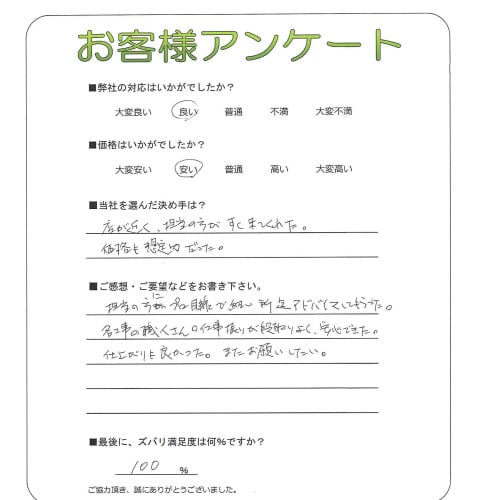 お客様アンケート
■弊社の対応はいかがでしたか？
大変良い　良い　普通　不満　大変不満
■価格はいかがでしたか？
大変安い　安い　普通　高い　大変高い
■当社を選んだ決め手は？
店が近く、担当の方がすぐ来てくれた。
価格も想定内だった。
■ご感想・ご要望などをお書き下さい。
担当の方にプロ目線で細い所迄アドバイスしてもらった。
各工事の職人さんの仕事振りが段取りよく、安心できた。
仕上がりも良かった。またお願いしたい。
■最後に、ズバリ満足度は何％ですか？
100 %
ご協力頂き、誠にありがとうございました。